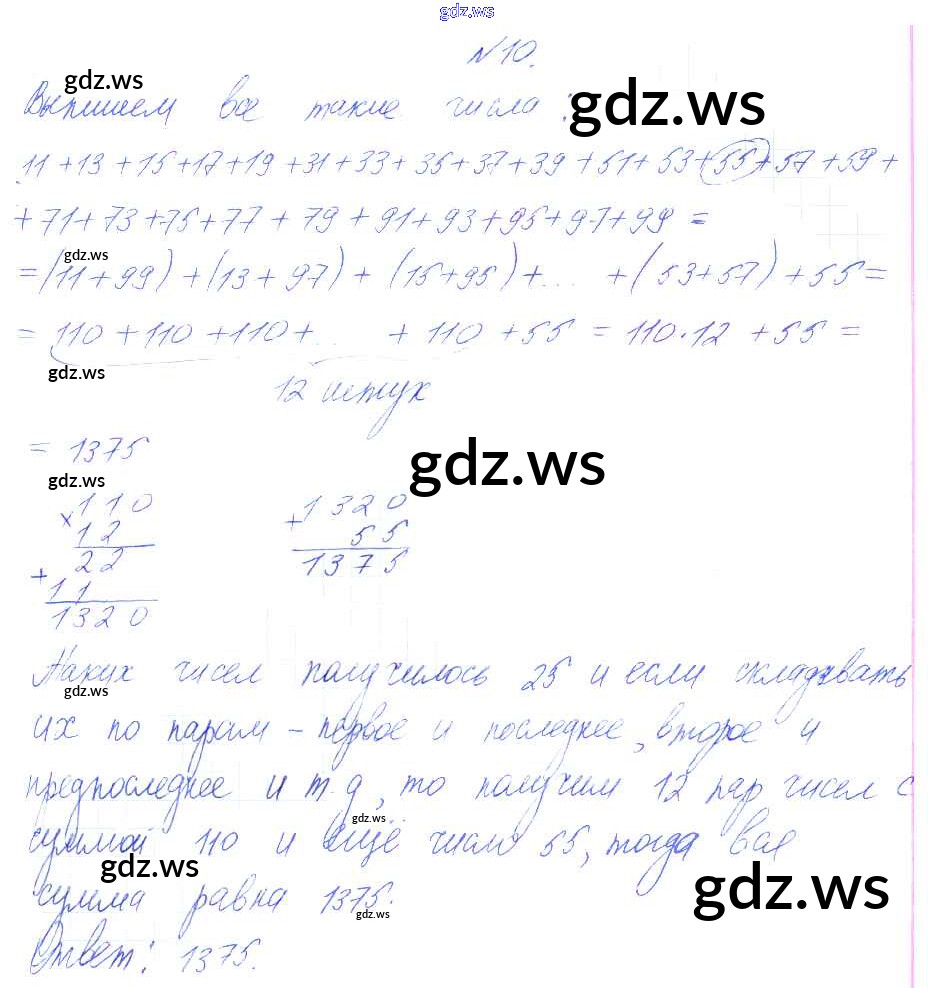 gdz.ws
№10.
gdz.ws
Выпишем все такие числа:
gdz.ws
11+13+15+17+19+31+33+35+37+39+51+53+55+57+59+
+71+73+75+77+79+91+93+95+97+99=
gdz.ws
=(11+99)+(13+97)+(15+95)+... +(53+57)+55=
=110+110+110+... +110+55=110·12+55=
gdz.ws
12 штук
=1375
gdz.ws
gdz.ws
×110
12
22
+11
1320
+1320
55
1375
Таких чисел получилось 25 и если складывать
gdz.ws
их по парам - первое и последнее, второе и
предпоследнее и т д, то получим 12 пар чисел с
gdz.ws
суммой 110 и ещё число 55, тогда вся
gdz.ws
gdz.ws
сумма равна 1375.
gdz.ws
Ответ: 1375.